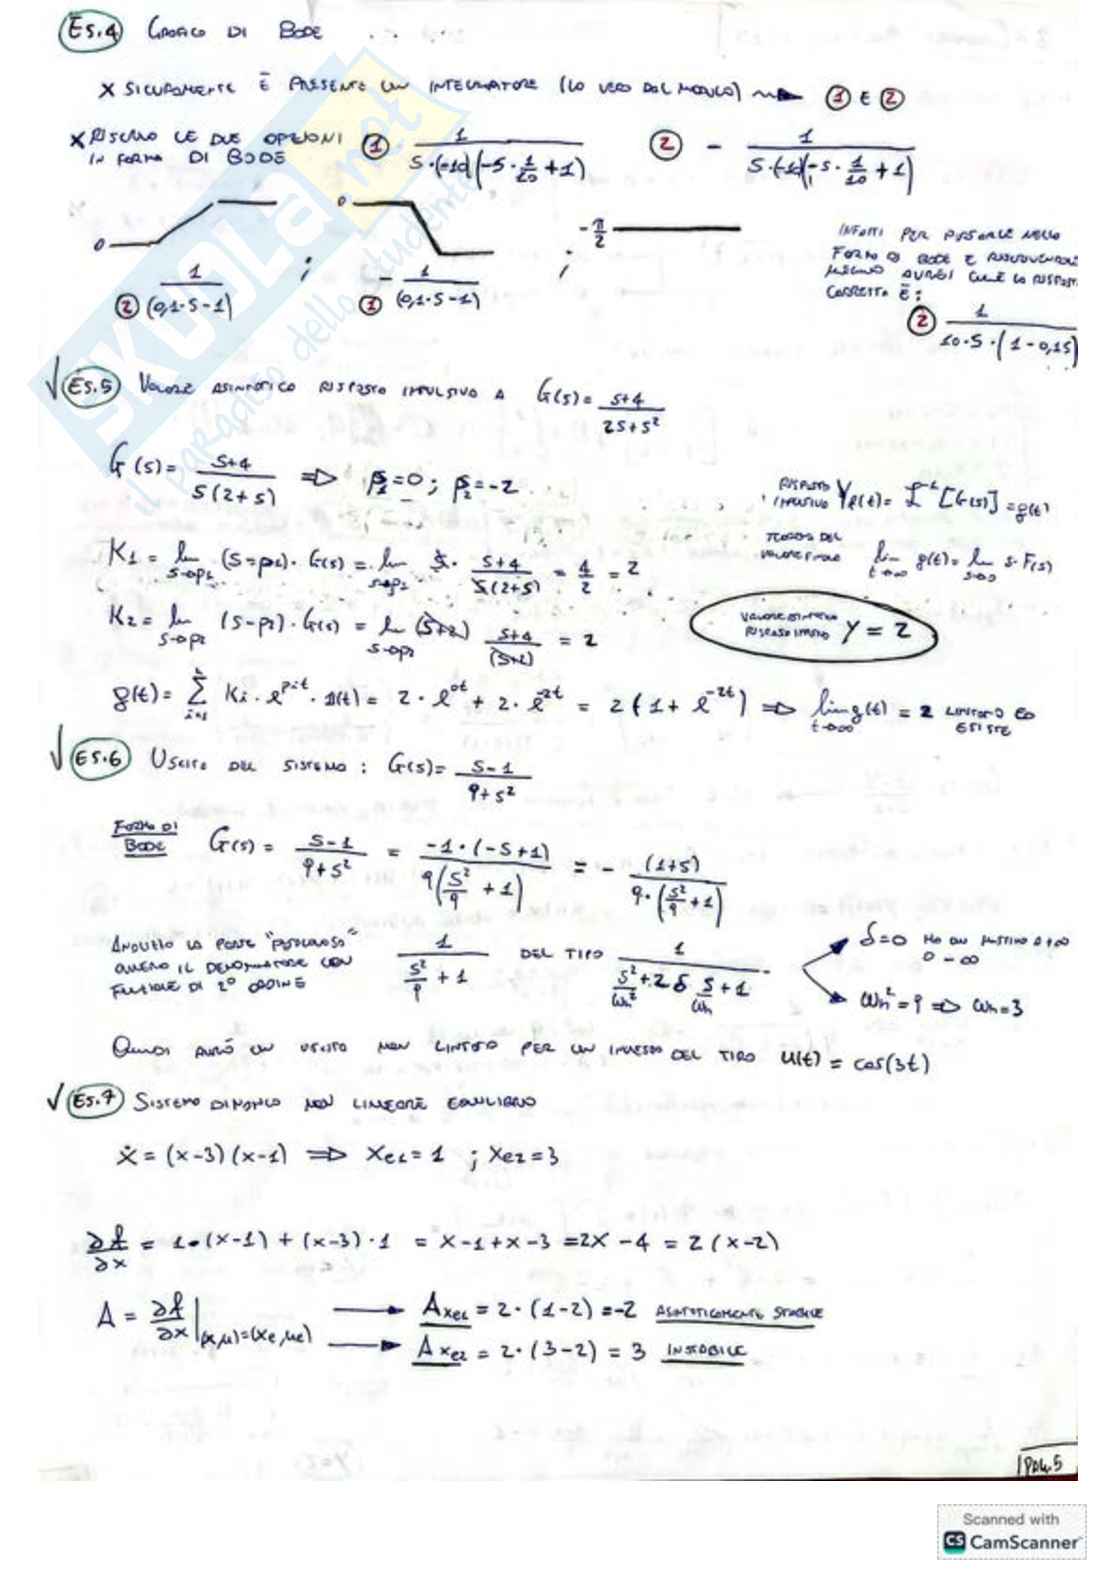 Es.4 GRAFICO DI BODE
× SICURAMENTE È PRESENTE UN INTEGRATORE (LO VEDO DAL MODULO) → ① E ②
× RISCRIVO LE DUE OPZIONI IN FORMA DI BODE ① 1/(S·(-10)(-S·1/10+1)) ② - 1/(S·(-10)(-S·1/10+1))
0 ; 0 ; -π/2
② 1/(0,1·S-1) ; ① - 1/(0,1·S-1)
INFATTI PER PASSARLE NELLA
FORMA DI BODE E
MEGLIO AVREI CHE LA RISPOSTA
CORRETTA È:
② 1/(10·S·(1-0,1S))
√ Es.5 VALORE ASINTOTICO RISPOSTA IMPULSIVA A G(s)= (s+4)/(2s+s²)
G(s)= (s+4)/(s(2+s)) ⇒ p₁=0 ; p₂=-2
RISPOSTA IMPULSIVA Yℓ(t)= ℒ⁻¹[G(s)] = g(t)
TEOREMA DEL VALORE FINALE lim t→∞ g(t)= lim s→0 s·F(s)
K1 = lim s→p₁ (s-p₁)·G(s) = lim s→p₁ s·(s+4)/(s(2+s)) = 4/2 = 2
K2 = lim s→p₂ (s-p₂)·G(s) = lim s→p₂ (s+2) (s+4)/(s+2) = 2
VALORE ASINTOTICO RISPOSTA IMPULSIVA Y = 2
g(t)= Σ i=1 Ki·e^(pi·t)·1(t) = 2·e^(0t) + 2·e^(-2t) = 2(1+e^(-2t)) ⇒ lim t→∞ g(t) = 2 LIMITATO ED ESISTE
√ Es.6 USCITA DEL SISTEMA : G(s)= (s-1)/(9+s²)
FORMA DI BODE G(s) = (s-1)/(9+s²) = -1·(-s+1)/(9(s²/9+1)) = - (1+s)/(9·(s²/9+1))
ANALIZZO LA PARTE "PERICOLOSA"
OVVERO IL DENOMINATORE CON
FUNZIONE DI 2° ORDINE
1/(s²/9+1) DEL TIPO 1/(s²/ωn²+2δ s/ωn+1)
δ=0 HO UN A +∞ O -∞
ωn²=9 ⇒ ωn=3
QUINDI AVRÒ UN USCITA NON LIMITATA PER UN INGRESSO DEL TIPO u(t) = cos(3t)
√ Es.7 SISTEMA DINAMICO NON LINEARE EQUILIBRIO
ẋ = (x-3)(x-1) ⇒ Xe1 = 1 ; Xe2 = 3
∂f/∂x = 1·(x-1) + (x-3)·1 = x-1+x-3 = 2x-4 = 2(x-2)
A = ∂f/∂x |(x,u)=(xe,ue)
→ Axe1 = 2·(1-2) = -2 ASINTOTICAMENTE STABILE
→ Axe2 = 2·(3-2) = 3 INSTABILE
PAG.5
SKUOLA.net
il paradiso dello studente
Scanned with
CS CamScanner